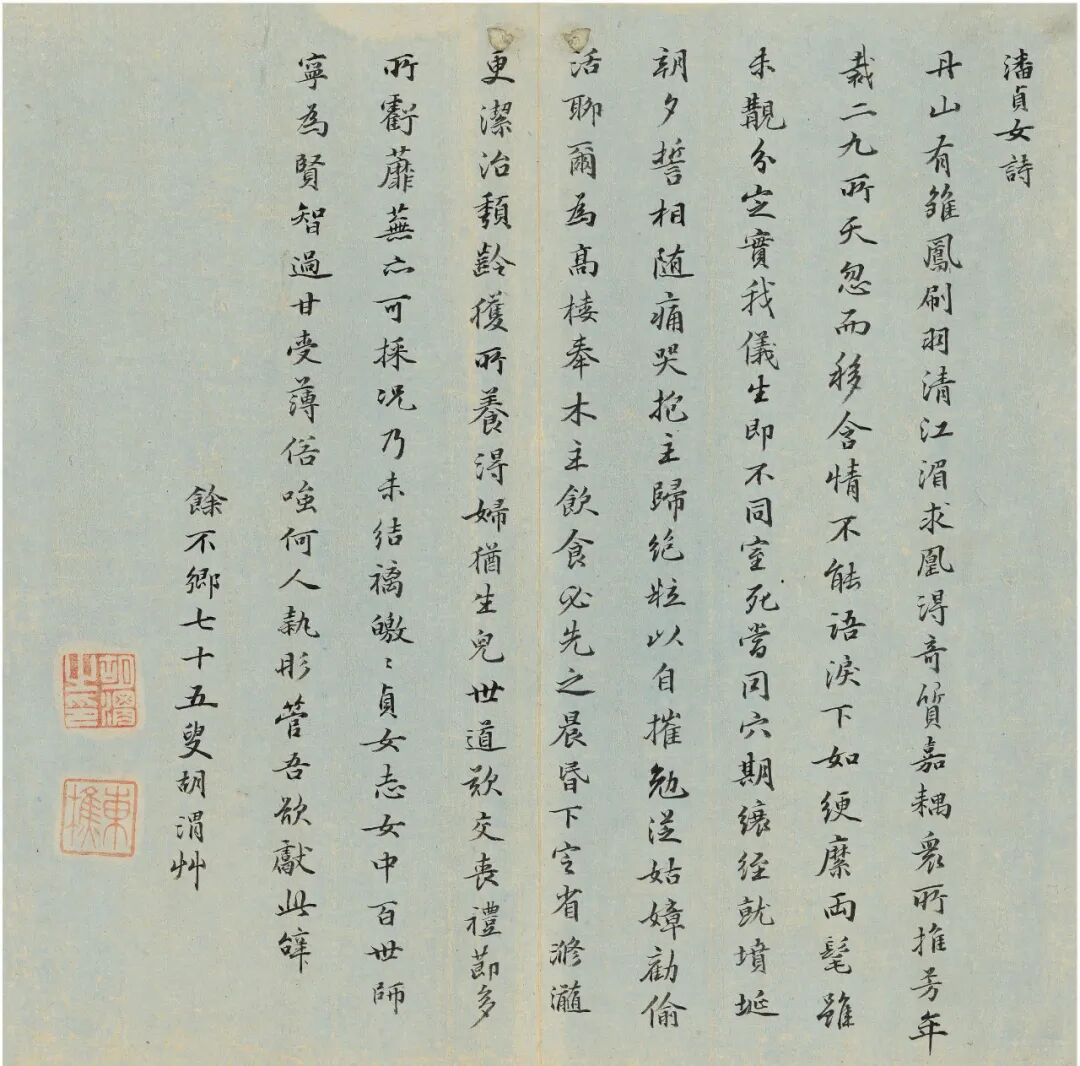 潘貞女詩
丹山有雏鳳刷羽清江湄求凰淂奇質嘉耦衆所推芳年
裁二九所天忽而移含情不能語淚下如綆縻両髦雖
未覯分定實我儀生即不同室死當同穴期縗絰就墳埏
朝夕誓相随痛哭抱主歸絶粒以自摧勉従姑嫜勸偷
活聊爾為髙棲奉木主飲食必先之晨昏下定省滫瀡
更潔治頹齡獲所養淂婦猶生兒世道欻交喪禮莭多
所虧蘼蕪亦可採况乃未结褵皦〻貞女志女中百世師
寧為賢智過甘受薄俗嗤何人執彤管吾欲獻此辭
餘不鄉七十五叟胡渭艸
胡渭之印
東樵